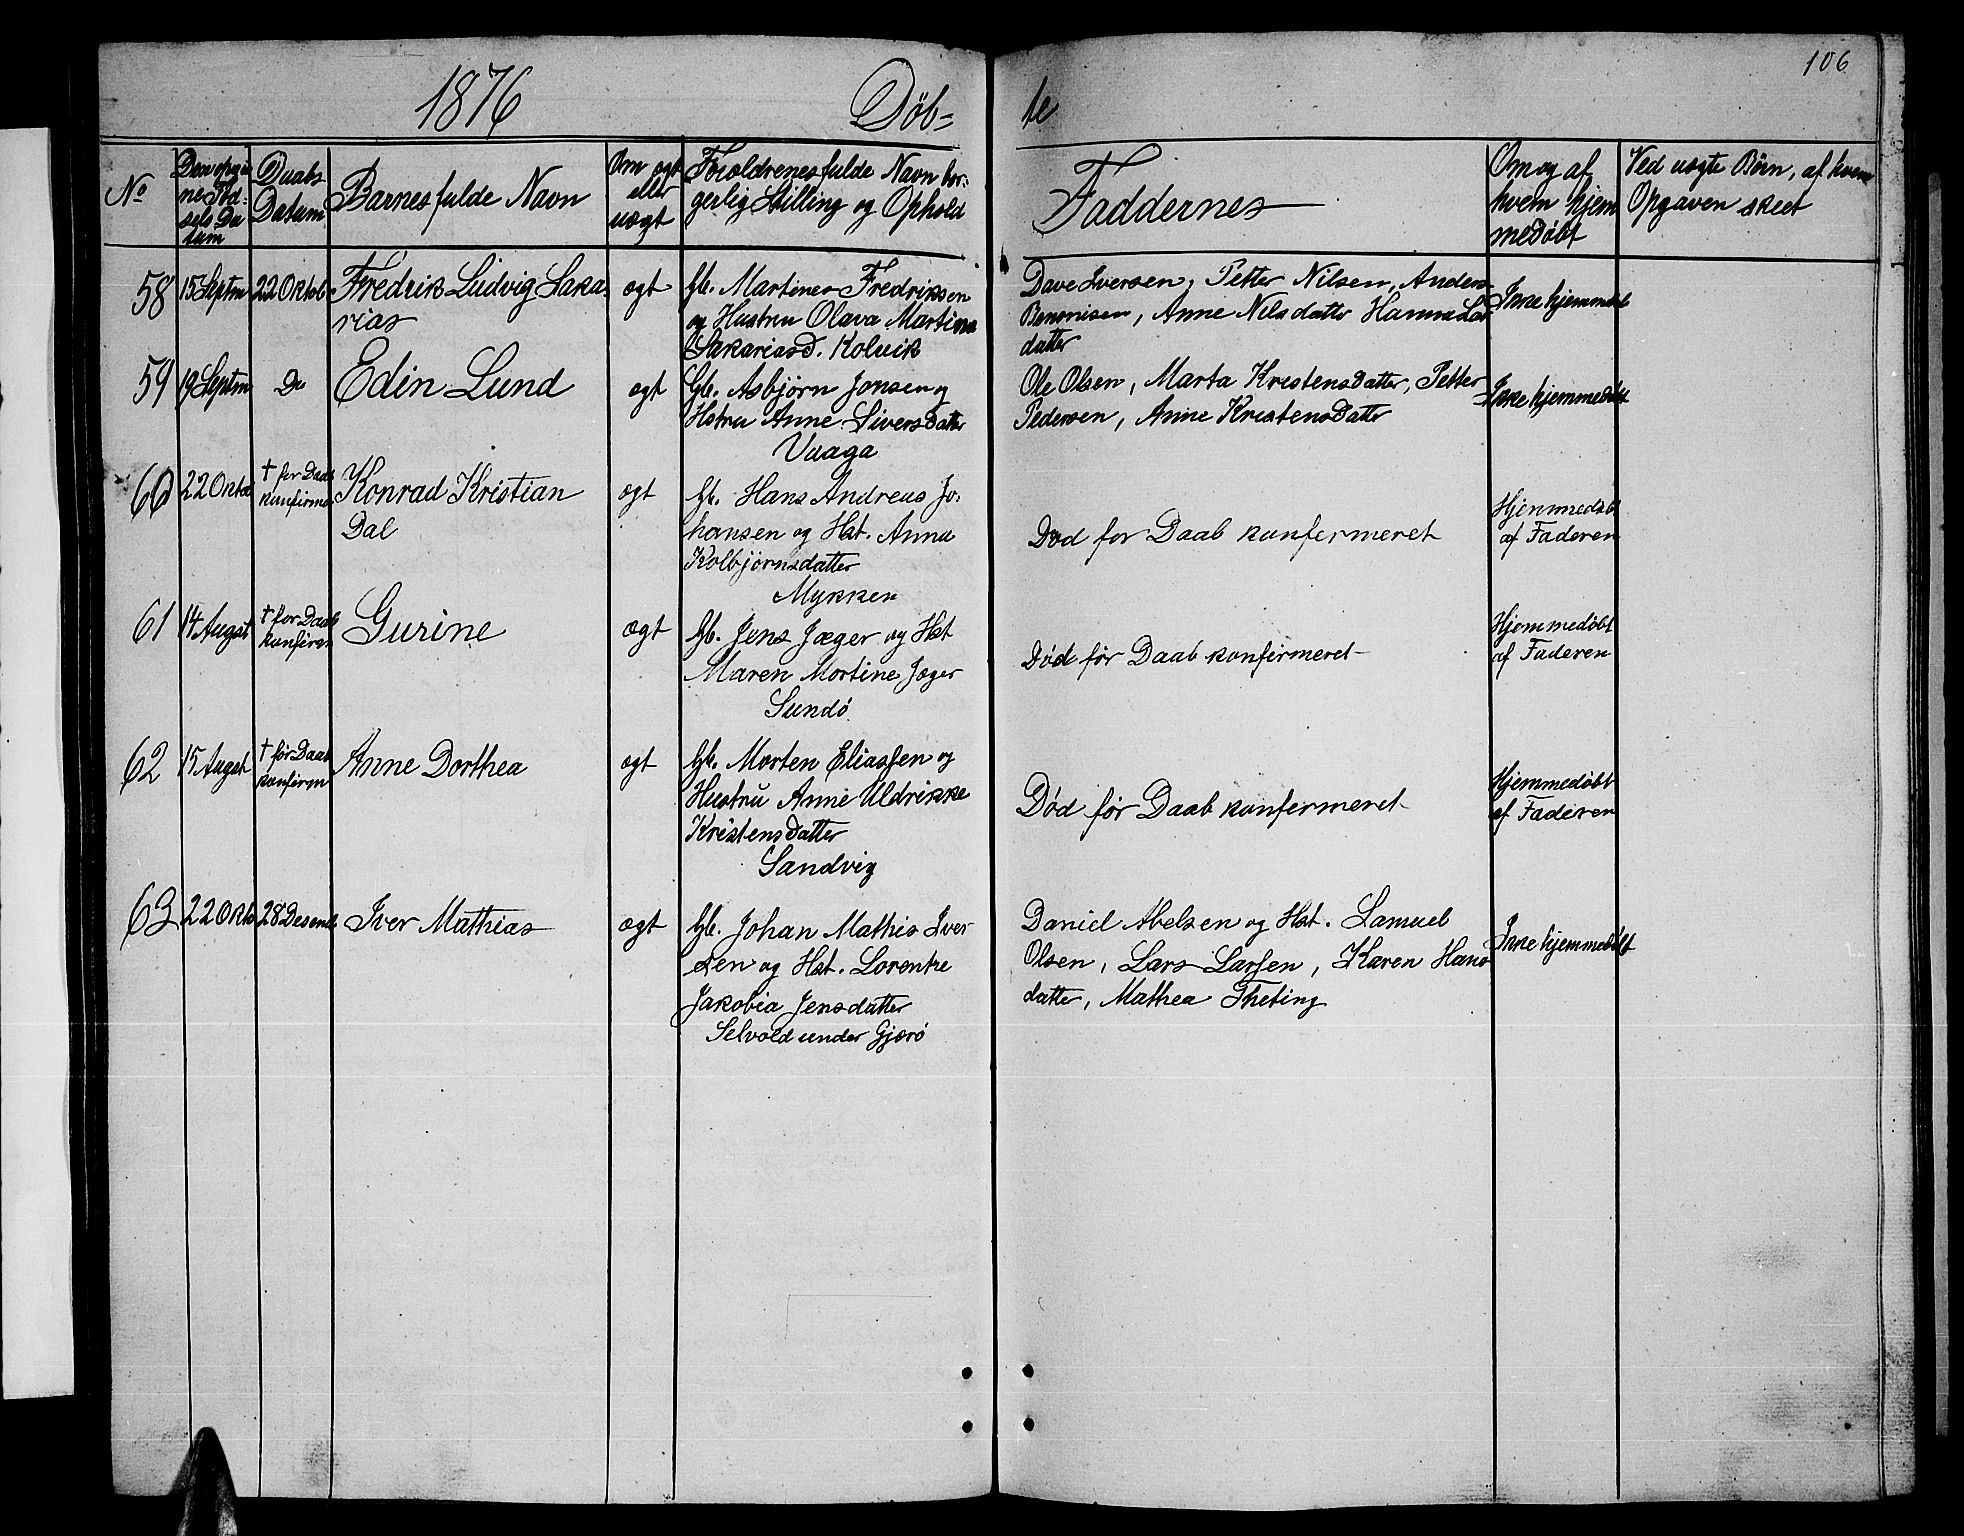 106
1876 Döb= te
No
Den opgivne Fødsels Datum
Daabs Datum
Barnes fulde Navn
Om ægt eller uægt
Foreldrenes fulde Navn bor:
gerlig Stilling og Ophold
Faddernes
Om og af hvem hjemmedøbt
Ved uægte Børn, af hvem Opgaven skeet
58 15 Septm 22 Oktob Fredrik Ludvig Saka:
rias
ægt
Gb. Martinus Fredriksen
og Hustru Olava Martina
Sakariasd. Kolvik
Iversen, Petter Nilsen, Anders
Benonisen, Anne Nilsdatter Hanna
datter
Ikke hjemmed
59 19 Septm Do Edin Lund
ægt
Gb. Asbjørn Jonsen og
Hstru Anne Siversdatter
Vaaga
Ole Olsen, Marta Kristensdatter, Petter
Pedersen, Anne Kristensdatter
Ikke hjemmedøbt
60 22 Oktob † før Daab
konfirme
Konrad Kristian
Dal
ægt
Gb. Hans Andreas Jo:
hansen og Hst. Anna
Kolbjørnsdatter
Mykken
Død før Daab konfermeret
Hjemmedøbt
af Faderen
61 14 August † før Daab
konfirm
Gurine
ægt
Gb. Jens Jæger og Hst
Maren Mortine Jæger
Sundö
Död før Daab konfirmeret
Hjemmedøbt
af Faderen
62 15 August † før Daab
konfirm
Anne Dorthea
ægt
Gb. Morten Eliassen og
Hustru Anne Uldrikke
Kristensdatter
Sandvig
Död før Daab konfermeret
Hjemmedøbt
af Faderen
63 22 Oktb 28 Desemb Iver Mathias
ægt
Gb. Johan Mathis Iver
sen og Hst. Lorentse
Jakobia Jensdatter
Selvold under Gjærö
Daniel Abelsen og Hst. Samuel
Olsen, Lars Larsen, Karen Hans
datter, Mathea Theting
Ikke hjemmedøbt